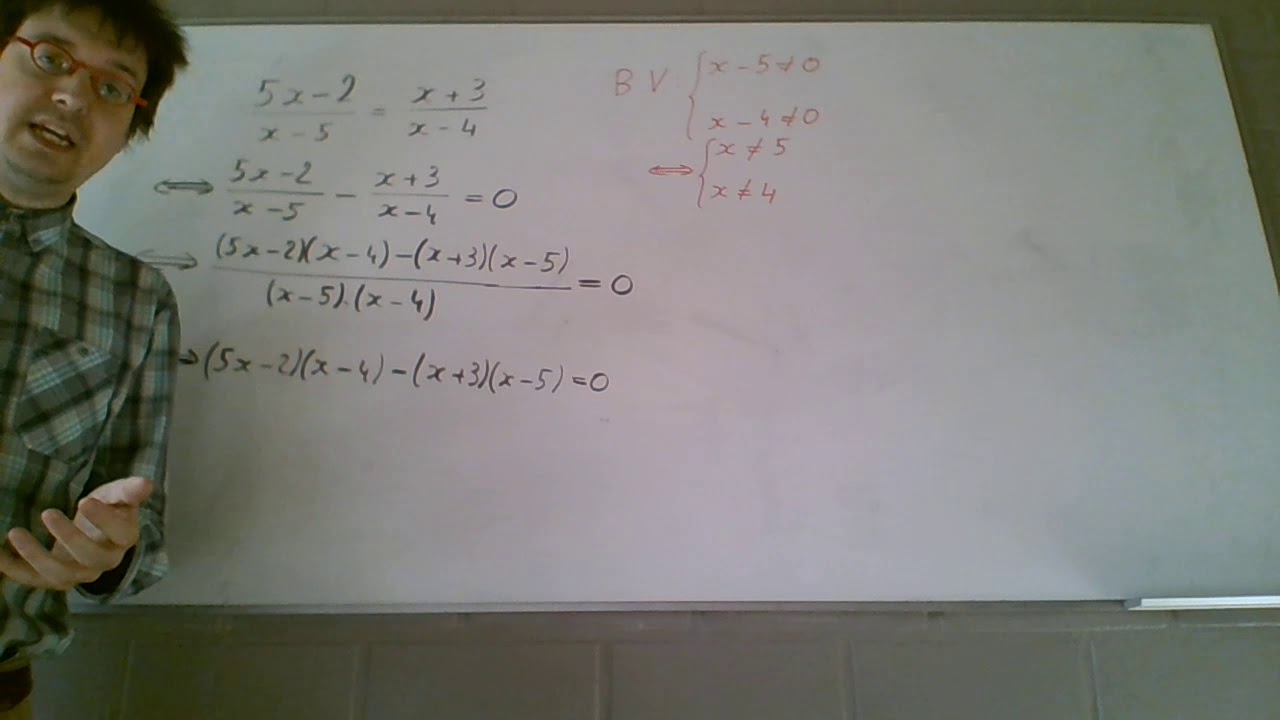 (5x-2)/(x-5) = (x+3)/(x-4)
⟺ (5x-2)/(x-5) - (x+3)/(x-4) = 0
⟺ ((5x-2)(x-4)-(x+3)(x-5))/((x-5).(x-4)) = 0
⇒ (5x-2)(x-4)-(x+3)(x-5)=0
BV { x-5≠0
x-4≠0
⟺ { x≠5
x≠4